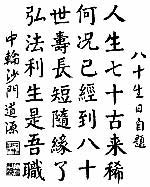 八十生日自題
人生七十古來稀
何況已經到八十
世壽長短隨緣了
弘法利生是吾職
中輪沙門道源